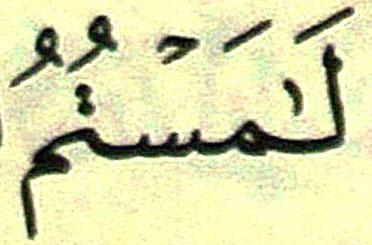 لَـٰمَسۡتُمُ